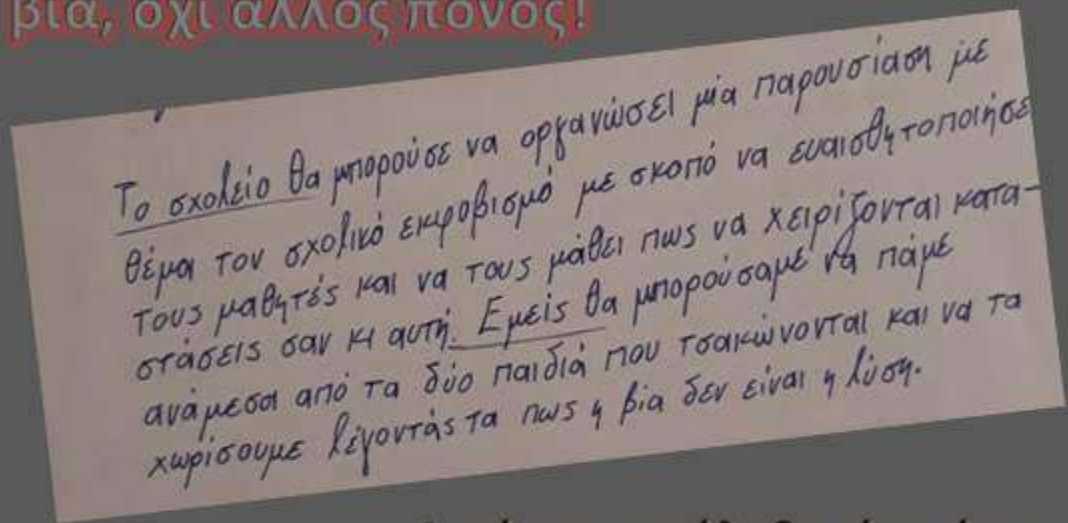 βία, όχι άλλος πόνος!
Το σχολείο θα μπορούσε να οργανώσει μία παρουσίαση με
θέμα τον σχολικό εκφοβισμό με σκοπό να ευαισθητοποιήσε
τους μαθητές και να τους μάθει πως να χειρίζονται κατα-
στάσεις σαν κι αυτή. Εμείς θα μπορούσαμε να πάμε
ανάμεσα από τα δύο παιδιά που τσακώνονται και να τα
χωρίσουμε λέγοντάς τα πως η βία δεν είναι η λύση.